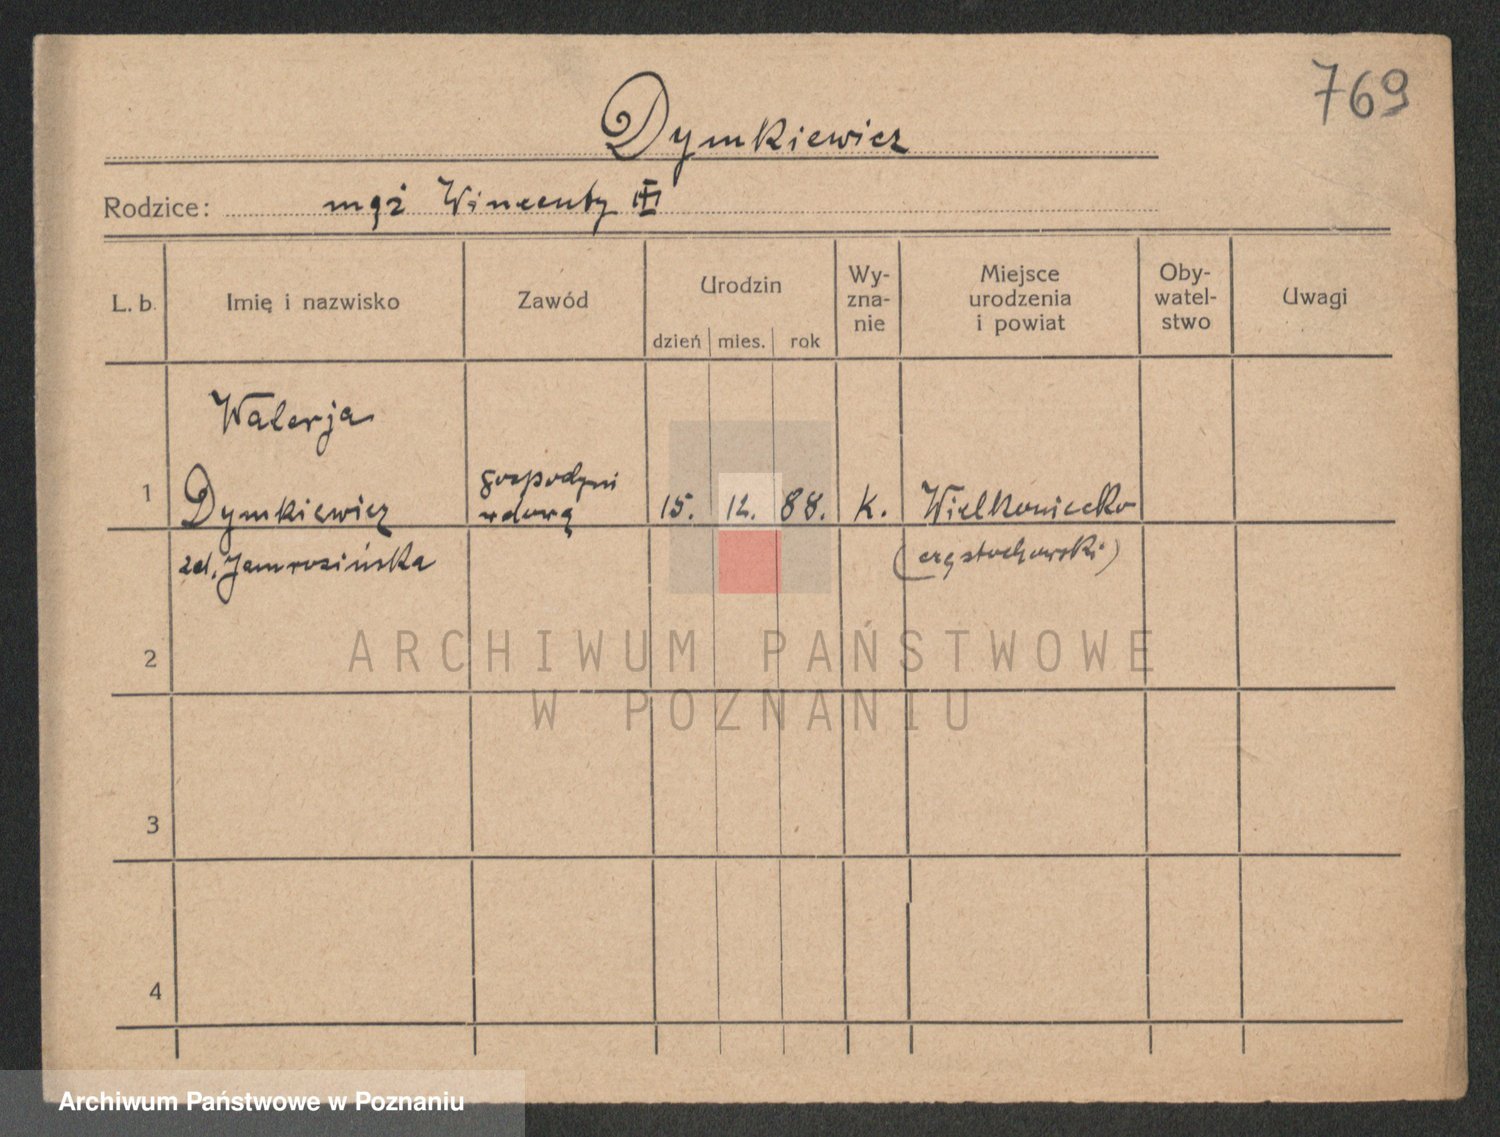 769
Dymkiewicz
Rodzice: mąż Wincenty
L. b. Imię i nazwisko Zawód Urodzin Wy-zna-nie Miejsce urodzenia i powiat Oby-watel-stwo Uwagi
dzień mies. rok
Walerja
1 Dymkiewicz gospodyni wdową 15. 12. 88. K. Wielkoniecko
zd. Jamrozińska (częstochowski)
2
3
4
ARCHIWUM PAŃSTWOWE
W POZNANIU
Archiwum Państwowe w Poznaniu